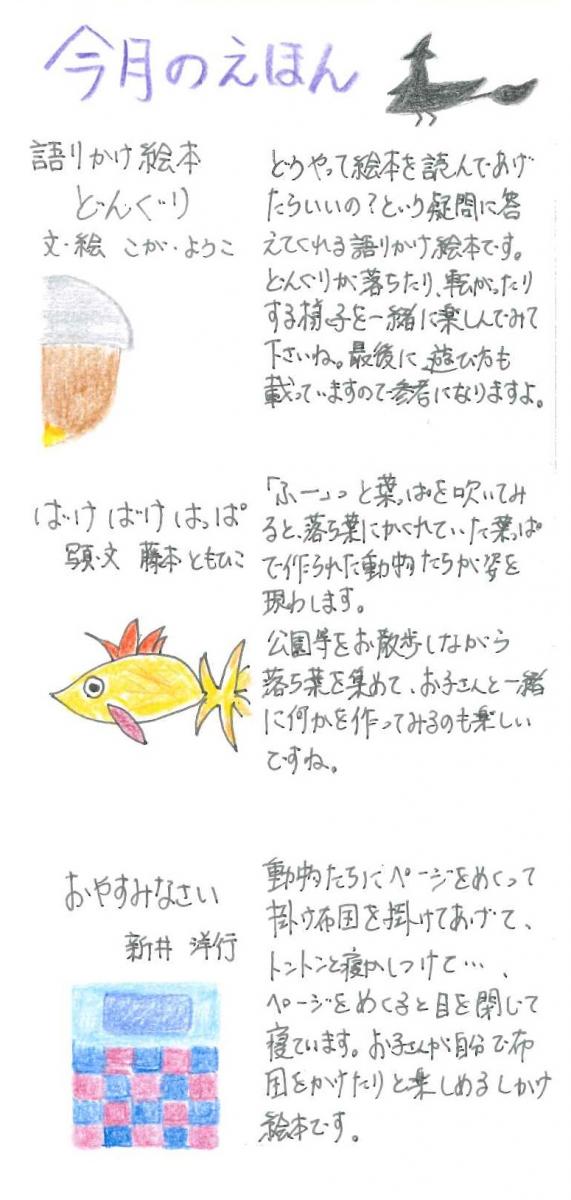 今月のえほん
語りかけ絵本
どんぐり
文・絵 こが・ようこ
どうやって絵本を読んであげ
たらいいの?という疑問に答
えてくれる語りかけ絵本です。
どんぐりが落ちたり、転がったり
する様子を一緒に楽しんでみて
下さいね。最後に、遊び方も
載っていますので参考になりますよ。
ばけばけはっぱ
写真・文 藤本ともひこ
「ふーっっと葉っぱを吹いてみ
ると、落ち葉にかくれていた葉っぱ
で作られた動物たちが姿を
現わします。
公園等をお散歩しながら
落ち葉を集めて、お子さんと一緒
に何かを作ってみるのも楽しい
ですね。
おやすみなさい
新井 洋行
動物たちにページをめくって
掛け布団を掛けてあげて、
トントンと寝かしつけて…、
ページをめくると目を閉じて
寝ています。お子さんが自分で布
団をかけたりと楽しめるしかけ
絵本です。